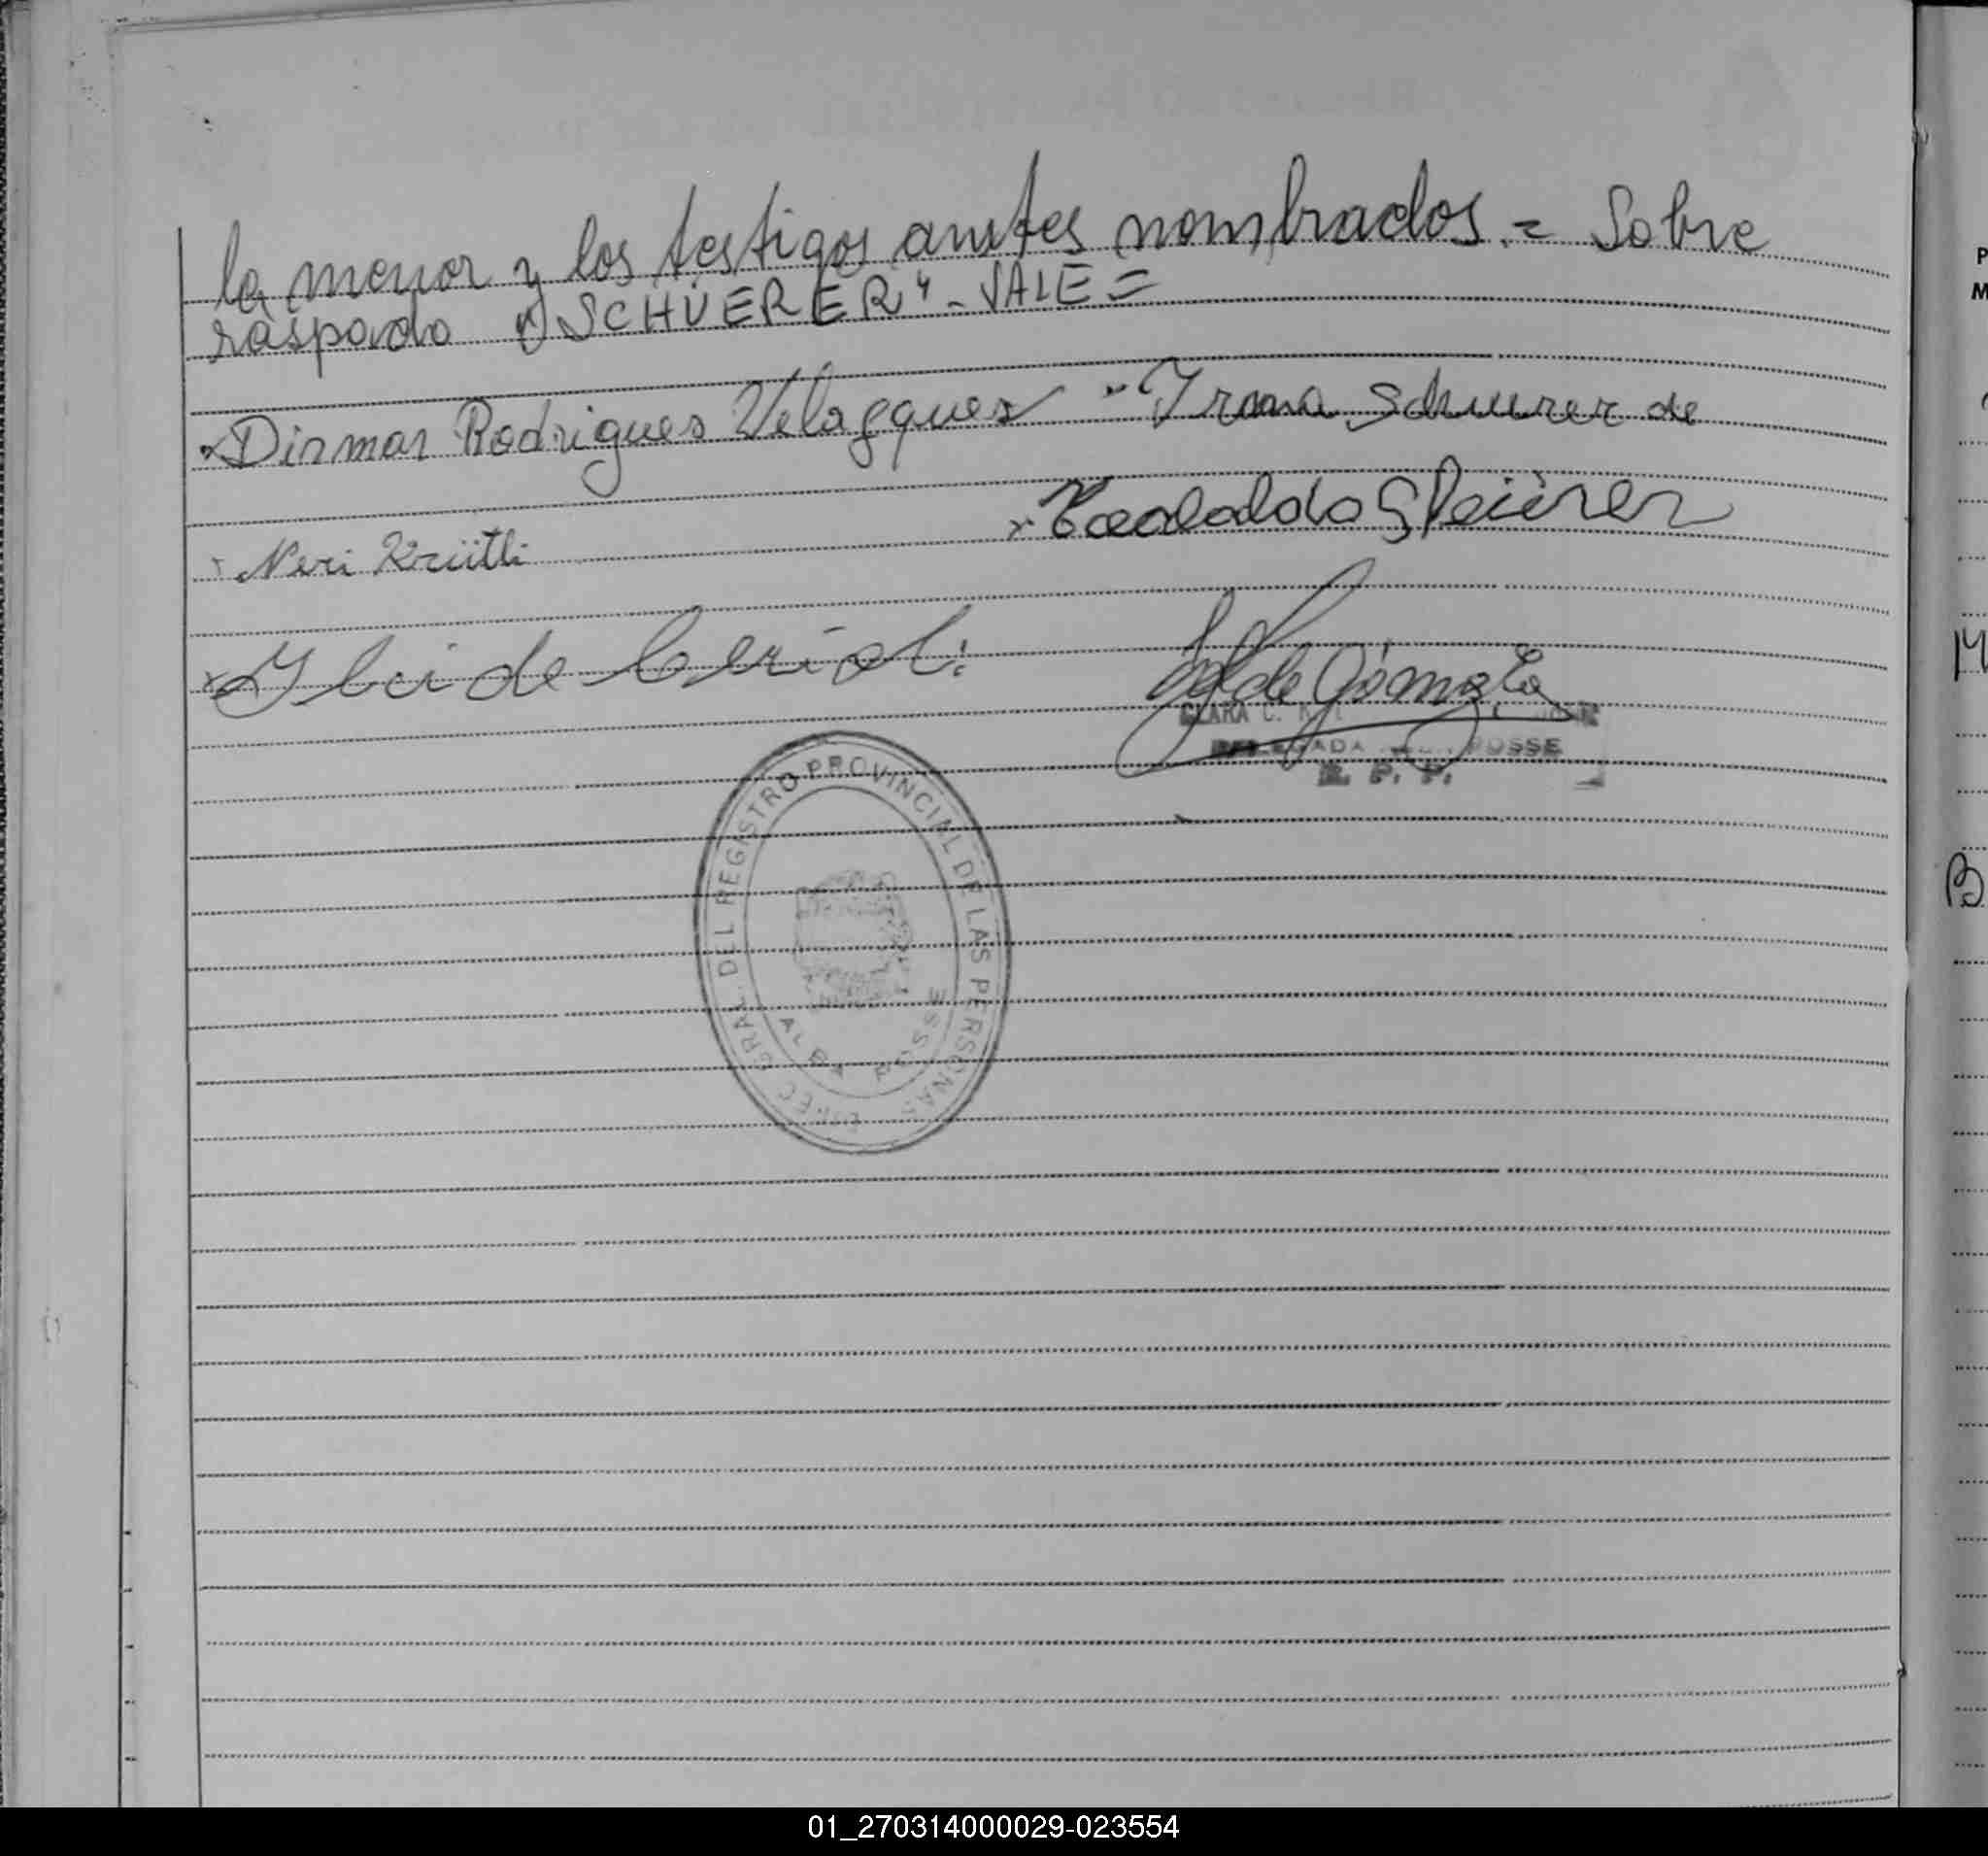 la menor y los testigos antes nombrados.= Sobre
raspado "SCHÜERER"-VALE=
Dirmar Rodrigues Velazques Irma Schuerer de
Neri Krütli
de Gómez
CLARA C.
DELEGADA POSSE
R. P. P.
DIREC. GRAL. DEL REGISTRO PROVINCIAL DE LAS PERSONAS
ALBA POSSE
P
M
M
B
01_270314000029-023554